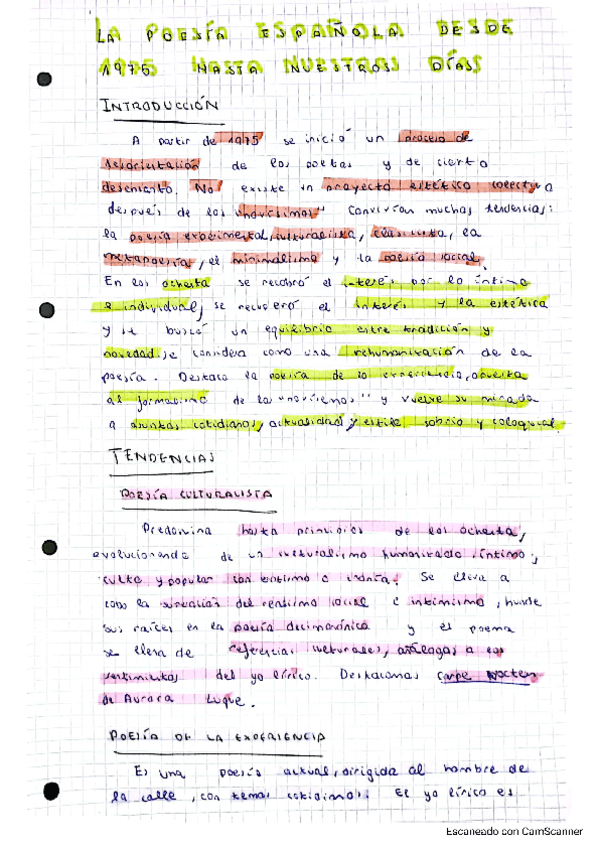 LA POESÍA ESPAÑOLA DESDE
1975 HASTA NUESTROS DÍAS
INTRODUCCIÓN
A partir de 1975 se inició un proceso de
desorientación de los poetas y de cierto
desencanto. No existe un proyecto estético colectivo
después de los "novísimos" Convivían muchas tendencias:
la poesía experimental, culturalista, clasicista, la
metapoesía, el minimalismo y la poesía social.
En los ochenta se recobró el interés por lo íntimo
e individual, se recuperó el interés y la estética
y se buscó un equilibrio entre tradición y
novedad. Se considera como una rehumanización de la
poesía. Destaca la poesía de la experiencia, opuesta
al formalismo de los "novísimos" y vuelve su mirada
a asuntos cotidianos, actualidad y estilo sobrio y coloquial.
TENDENCIAS
POESÍA CULTURALISTA
Predomina hasta principios de los ochenta,
evolucionando de un culturalismo humanizado íntimo,
culto y popular con erotismo e ironía. Se lleva a
cabo la del realismo social e intimismo, hunde
sus raíces en la poesía decimonónica y el poema
se llena de referencias culturales, análogas a los
sentimientos del yo lírico. Destacamos Carpe Noctem
de Aurora Luque.
POESÍA DE LA EXPERIENCIA
Es una poesía actual, dirigida al hombre de
la calle, con temas cotidianos. El yo lírico es
Escaneado con CamScanner